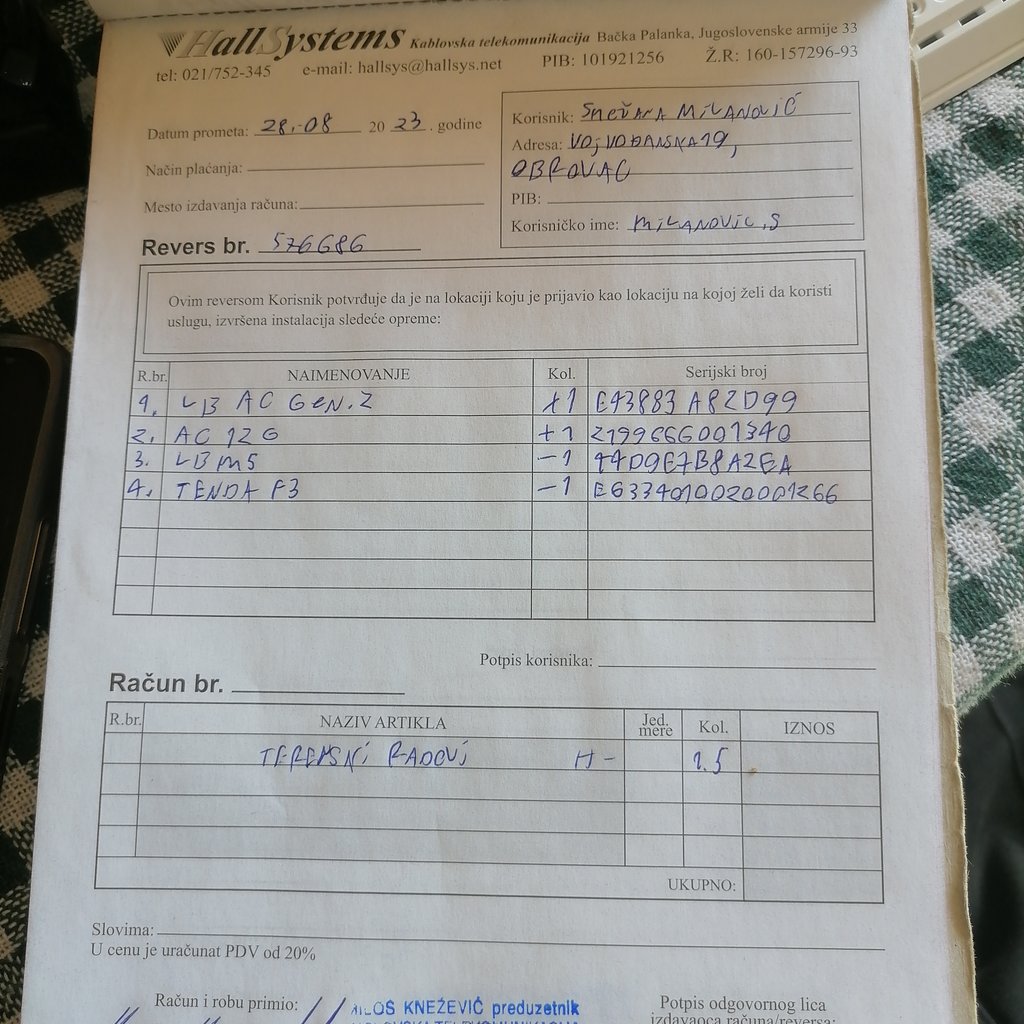 HallSystems Kablovska telekomunikacija Bačka Palanka, Jugoslovenske armije 33
tel: 021/752-345 e-mail: hallsys@hallsys.net PIB: 101921256 Ž.R: 160-157296-93
Datum prometa: 28.-08 2023. godine
Način plaćanja:
Mesto izdavanja računa:
Revers br. 576686
Korisnik: SNEŽANA MILANOVIĆ
Adresa: VOJVOĐANSKA 19,
OBROVAC
PIB:
Korisničko ime: MILANOVIC.S
Ovim reversom Korisnik potvrđuje da je na lokaciji koju je prijavio kao lokaciju na kojoj želi da koristi
uslugu, izvršena instalacija sledeće opreme:
R.br. NAIMENOVANJE Kol. Serijski broj
1. LB AC GEN.2 +1 E43883A82D99
2. AC 12G +1 2199666001340
3. LB M5 -1 44D9E7B8A2EA
4. TENDA F3 -1 E6334010020001266
Potpis korisnika:
Račun br.
R.br. NAZIV ARTIKLA Jed. mere Kol. IZNOS
TERENSKI RADOVI H- 1.5
UKUPNO:
Slovima:
U cenu je uračunat PDV od 20%
Račun i robu primio:
MILOŠ KNEŽEVIĆ preduzetnik
Potpis odgovornog lica
izdavaoca računa/reversa: